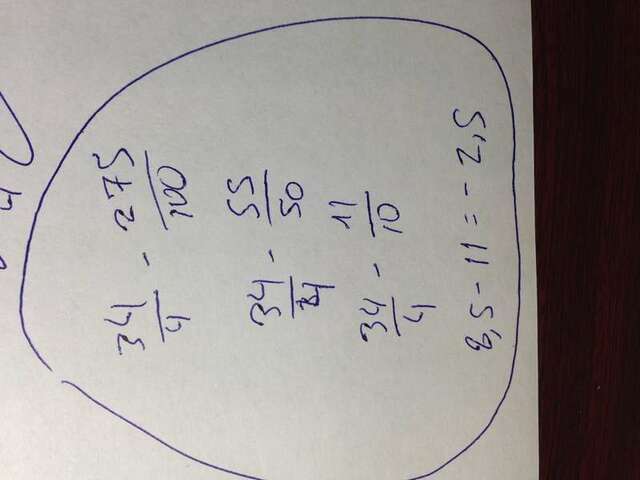 34/4 - 275/100
34/4 - 55/50
34/4 - 11/10
8,5 - 11 = - 2,5